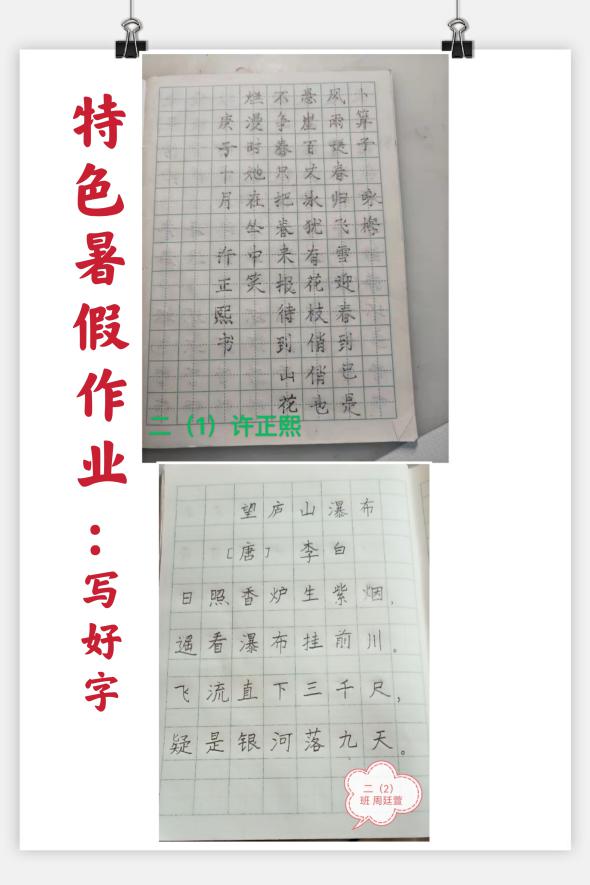 特色暑假作业：写好字
卜算子 咏梅
风雨送春归飞雪迎春到已是
悬崖百丈冰犹有花枝俏俏也
不争春只把春来报待到山花
烂漫时她在丛中笑
庚子十月 许正熙书
二（1）许正熙
望庐山瀑布
[唐] 李白
日照香炉生紫烟,
遥看瀑布挂前川。
飞流直下三千尺,
疑是银河落九天。
二（2）
班 周廷萱